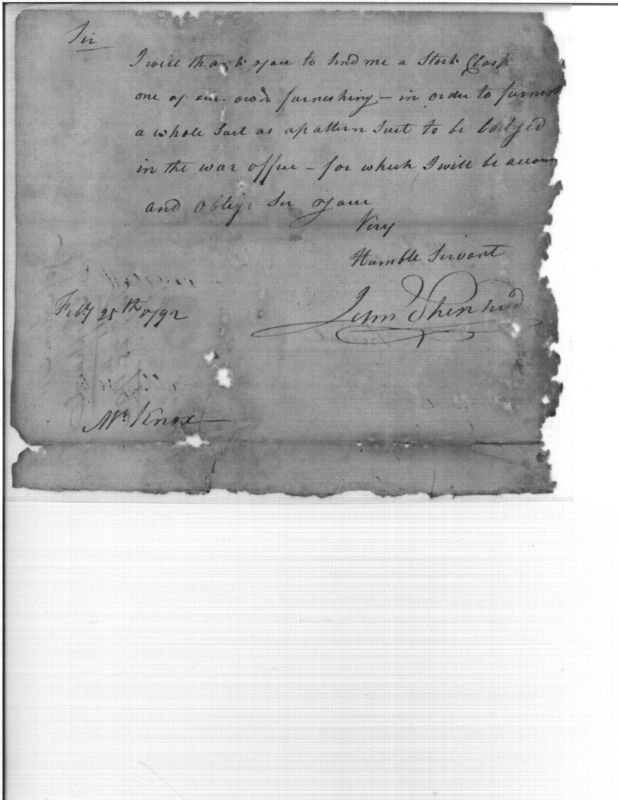 Sir
I will thank you to Send me a Stock Clasp
one of our own furneshing – in order to furnish
a whole Suit as apattern Suit to be lodged
in the war office – for which I will be accoun
and oblige Sir your
Very
Humble Servant
Feby 25th 1792
Mr. Knox –